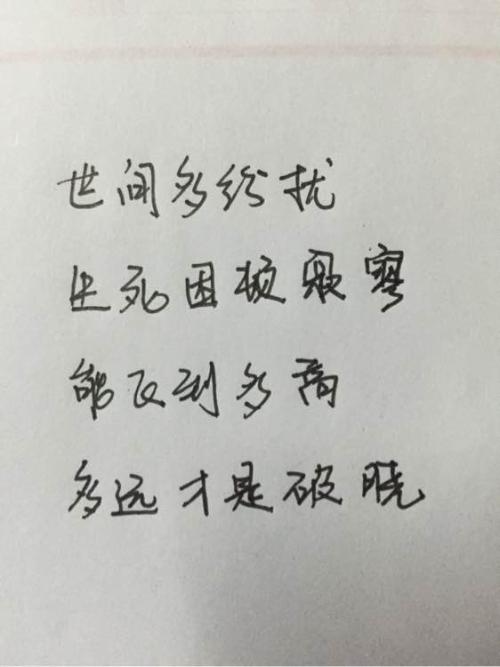 世间多纷扰
生死困顿寂寥
能飞到多高
多远才是破晓